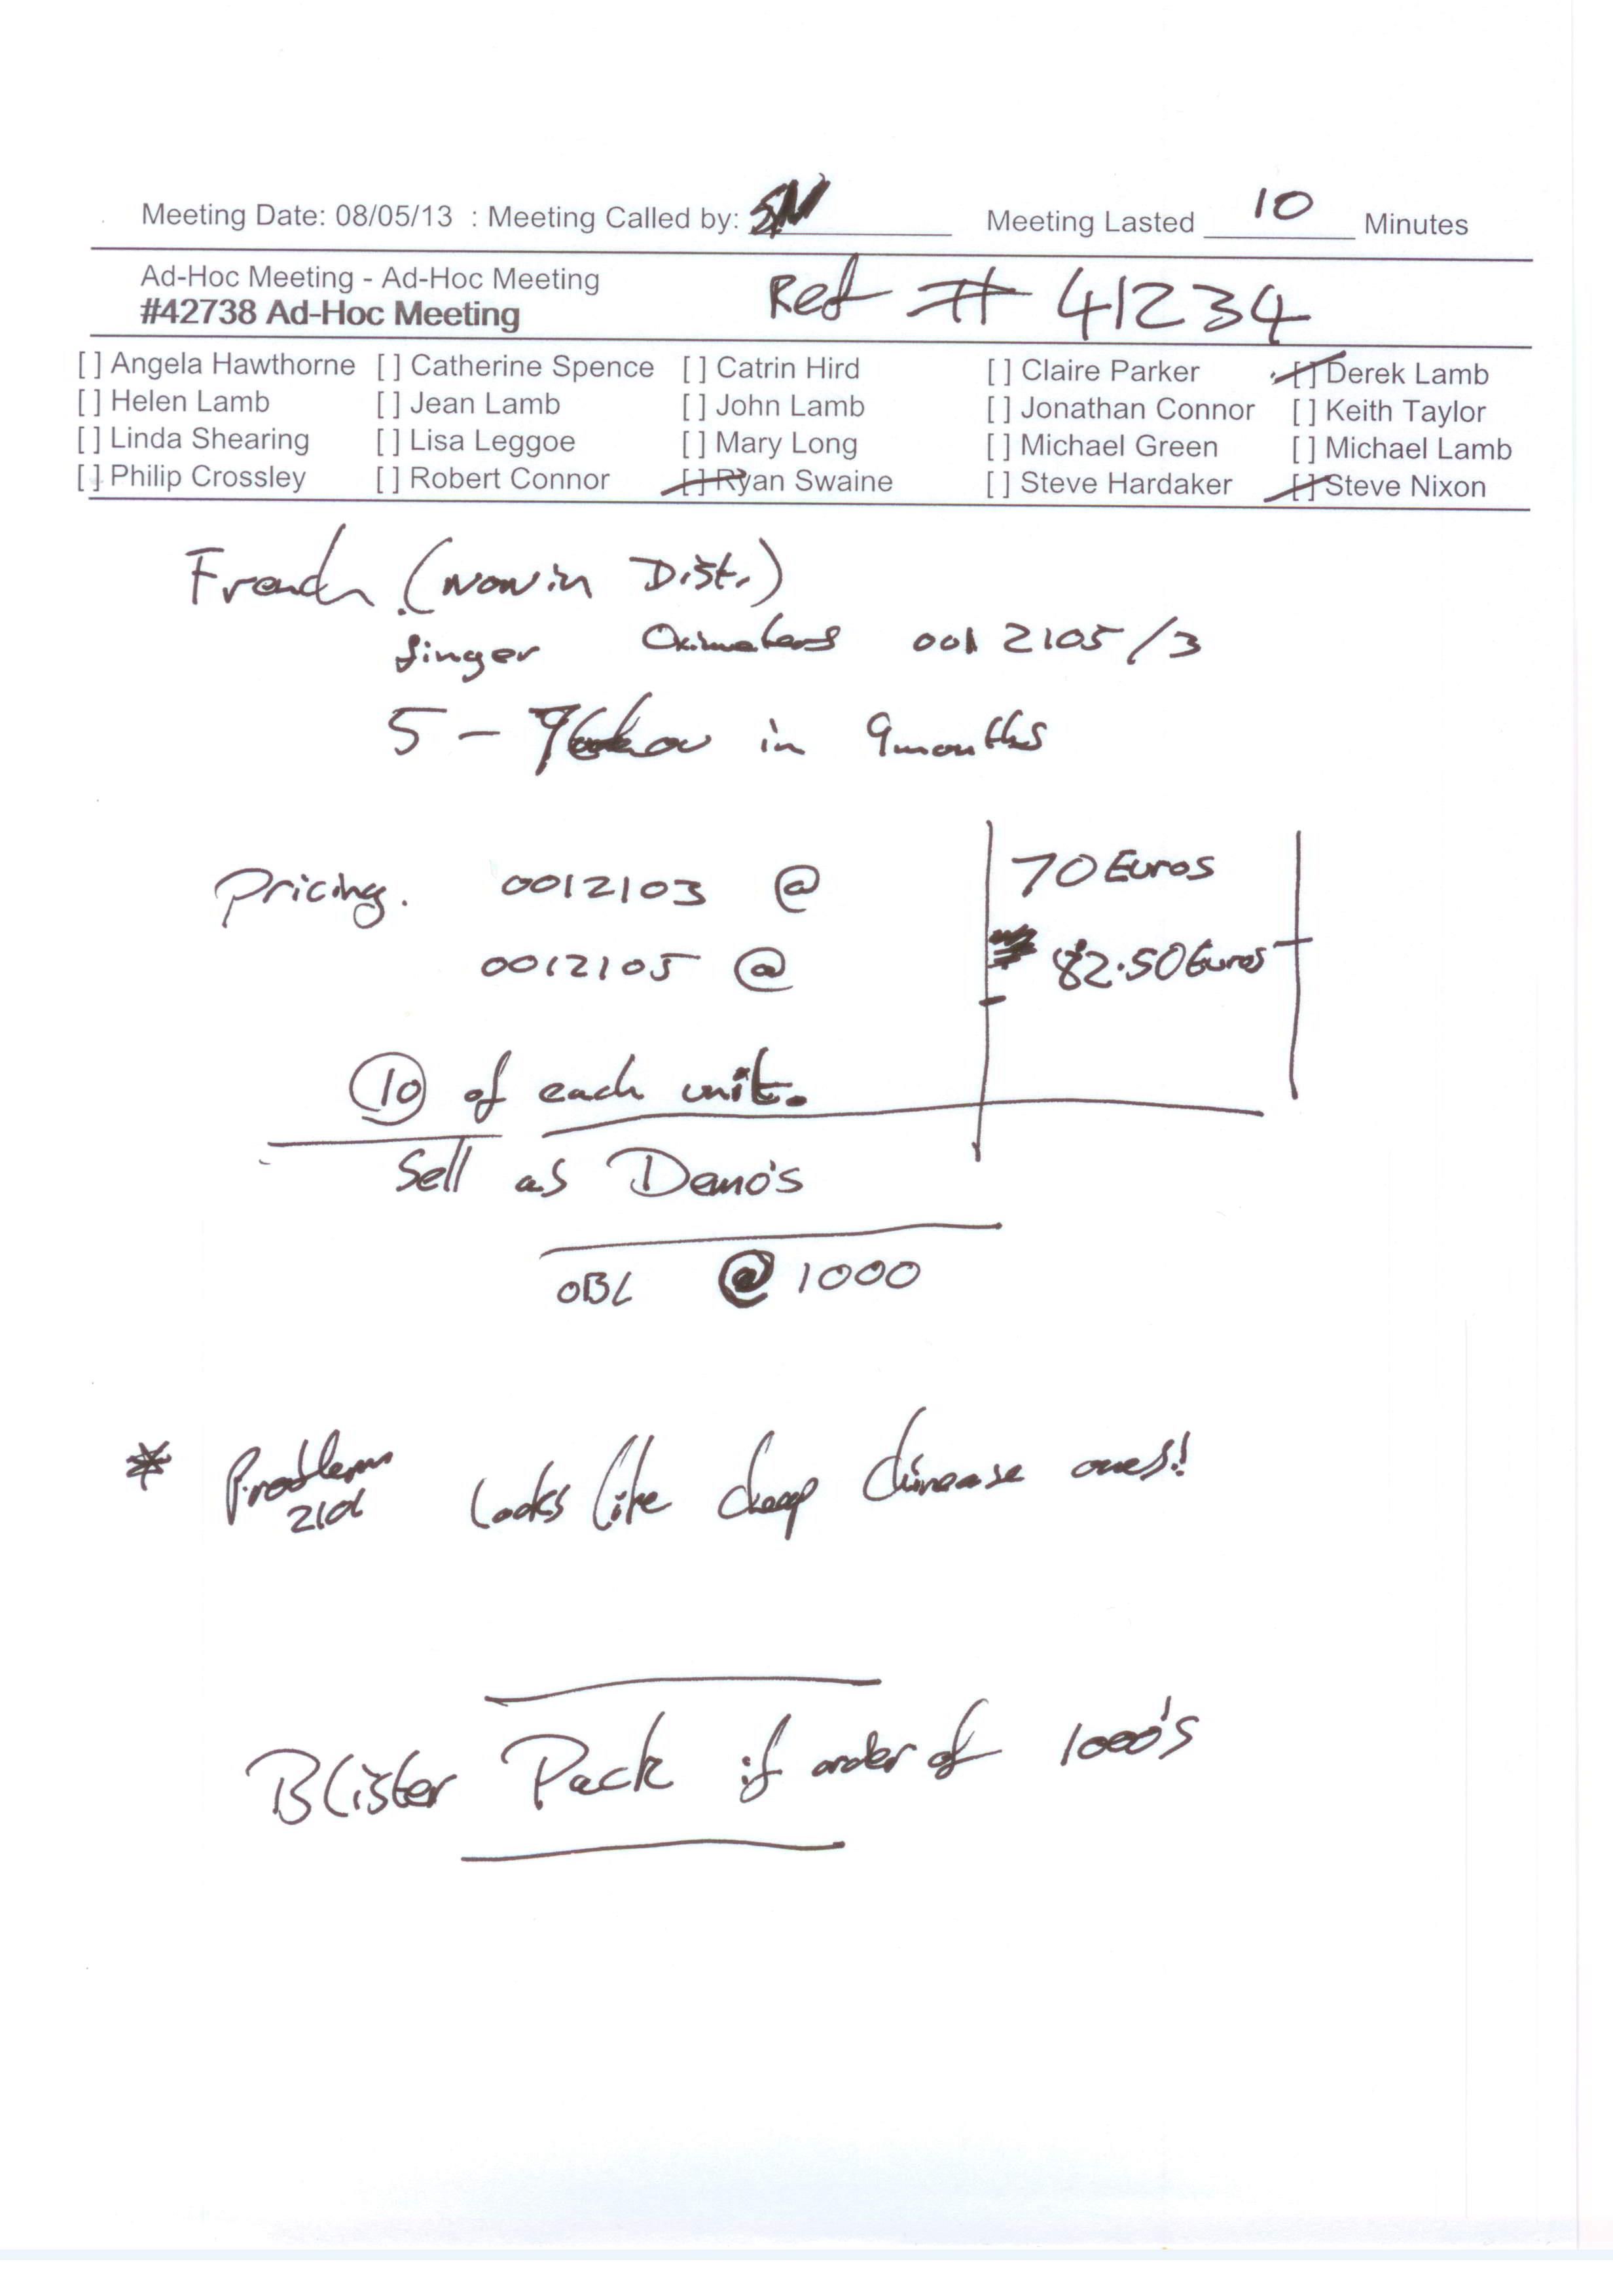 Meeting Date: 08/05/13 : Meeting Called by: SN Meeting Lasted 10 Minutes
Ad-Hoc Meeting - Ad-Hoc Meeting
#42738 Ad-Hoc Meeting Ref # 41234
[ ] Angela Hawthorne [ ] Catherine Spence [ ] Catrin Hird [ ] Claire Parker [ ] Derek Lamb
[ ] Helen Lamb [ ] Jean Lamb [ ] John Lamb [ ] Jonathan Connor [ ] Keith Taylor
[ ] Linda Shearing [ ] Lisa Leggoe [ ] Mary Long [ ] Michael Green [ ] Michael Lamb
[ ] Philip Crossley [ ] Robert Connor [ ] Ryan Swaine [ ] Steve Hardaker [ ] Steve Nixon
French (Now in Dist.)
finger Oximeters 0012105/3
5 - in 9months
Pricing. 0012103 @ 70 Euros
0012105 @ 82.50 Euros
10 of each unit.
Sell as Demo's
OBL @ 1000
* Problem looks like cheap chinease ones!!
210d
Blister Pack if order of 1000's